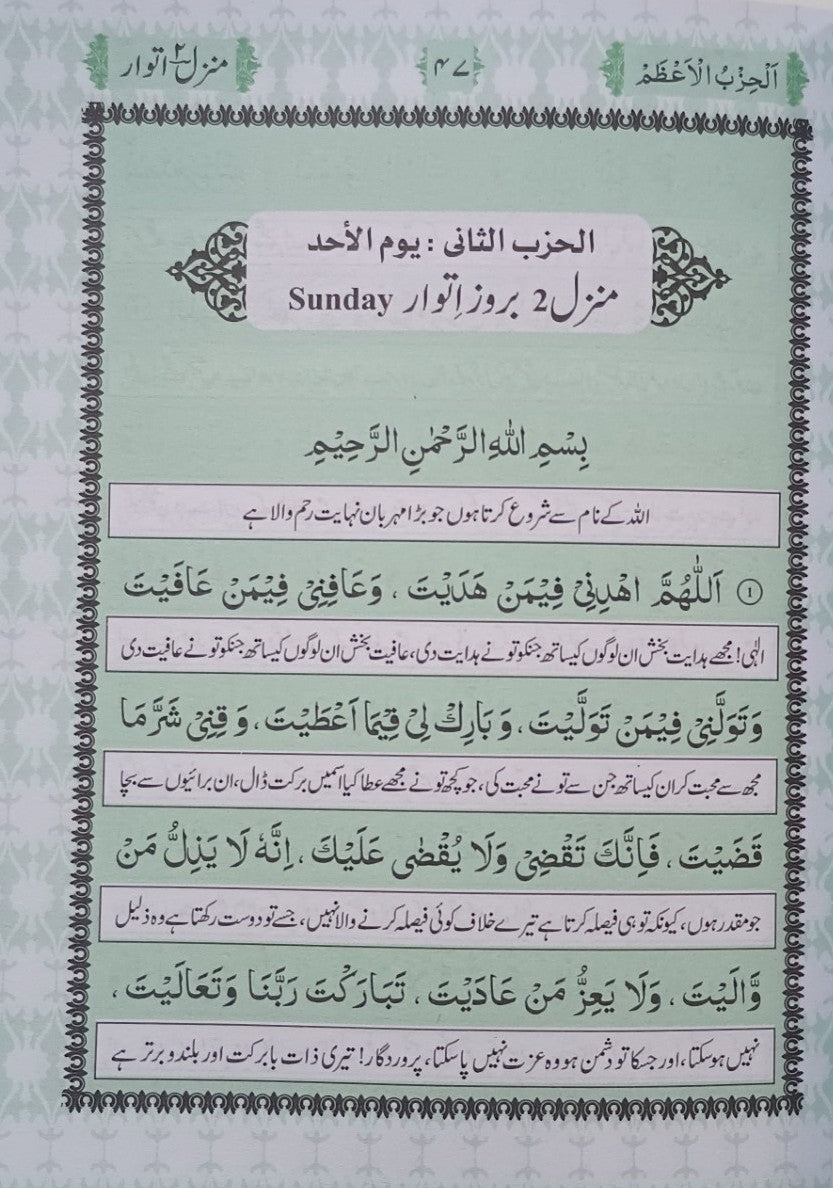 اَلْحِزْبُ الْاَعْظَمْ
۴۷
منزل ۲ اتوار
الحزب الثانی : يوم الأحد
منزل 2 بروز اِتوار Sunday
بِسْمِ اللّٰهِ الرَّحْمٰنِ الرَّحِيْمِ
اللہ کے نام سے شروع کرتا ہوں جو بڑا مہربان نہایت رحم والا ہے
① اَللّٰهُمَّ اهْدِنِيْ فِيْمَنْ هَدَيْتَ ، وَعَافِنِيْ فِيْمَنْ عَافَيْتَ
الٰہی! مجھے ہدایت بخش ان لوگوں کیساتھ جنکو تو نے ہدایت دی، عافیت بخش ان لوگوں کیساتھ جنکو تو نے عافیت دی
وَتَوَلَّنِيْ فِيْمَنْ تَوَلَّيْتَ ، وَبَارِكْ لِيْ فِيْمَا اَعْطَيْتَ ، وَقِنِيْ شَرَّمَا
مجھ سے محبت کر ان کیساتھ جن سے تو نے محبت کی، جو کچھ تو نے مجھے عطا کیا اسمیں برکت ڈال، ان برائیوں سے بچا
قَضَيْتَ ، فَاِنَّكَ تَقْضِيْ وَلَا يُقْضٰى عَلَيْكَ ، اِنَّهٗ لَا يَذِلُّ مَنْ
جو مقدر ہوں، کیونکہ تو ہی فیصلہ کرتا ہے تیرے خلاف کوئی فیصلہ کرنے والا نہیں، جسے تو دوست رکھتا ہے وہ ذلیل
وَّالَيْتَ ، وَلَا يَعِزُّ مَنْ عَادَيْتَ ، تَبَارَكْتَ رَبَّنَا وَتَعَالَيْتَ ،
نہیں ہو سکتا، اور جسکا تو دشمن ہو وہ عزت نہیں پا سکتا، پروردگار! تیری ذات بابرکت اور بلند و برتر ہے